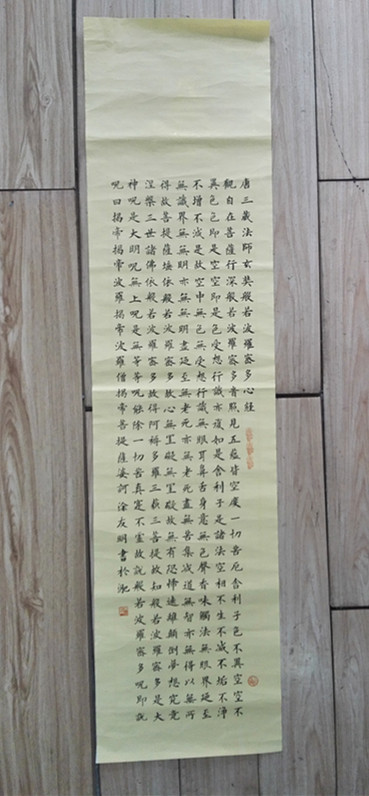 唐三藏法師玄奘般若波羅蜜多心經
觀自在菩薩行深般若波羅蜜多時照見五蘊皆空度一切苦厄舍利子色不異空空不
異色色即是空空即是色受想行識亦復如是舍利子是諸法空相不生不滅不垢不淨
不增不減是故空中無色無受想行識無眼耳鼻舌身意無色聲香味觸法無眼界廼至
無識界無無明亦無無明盡廼至無老死亦無老死盡無苦集滅道無智亦無得以無所
得故菩提薩埵依般若波羅蜜多故心無罣礙無罣礙故無有恐怖遠離顛倒夢想究竟
涅槃三世諸佛依般若波羅蜜多故得阿耨多羅三藐三菩提故知般若波羅蜜多是大
神呪是大明呪無上呪是無等等呪能除一切苦真寔不虛故說般若波羅蜜多呪即說
呪曰揭帝揭帝波羅揭帝波羅僧揭帝菩提薩婆訶 涂友明書於